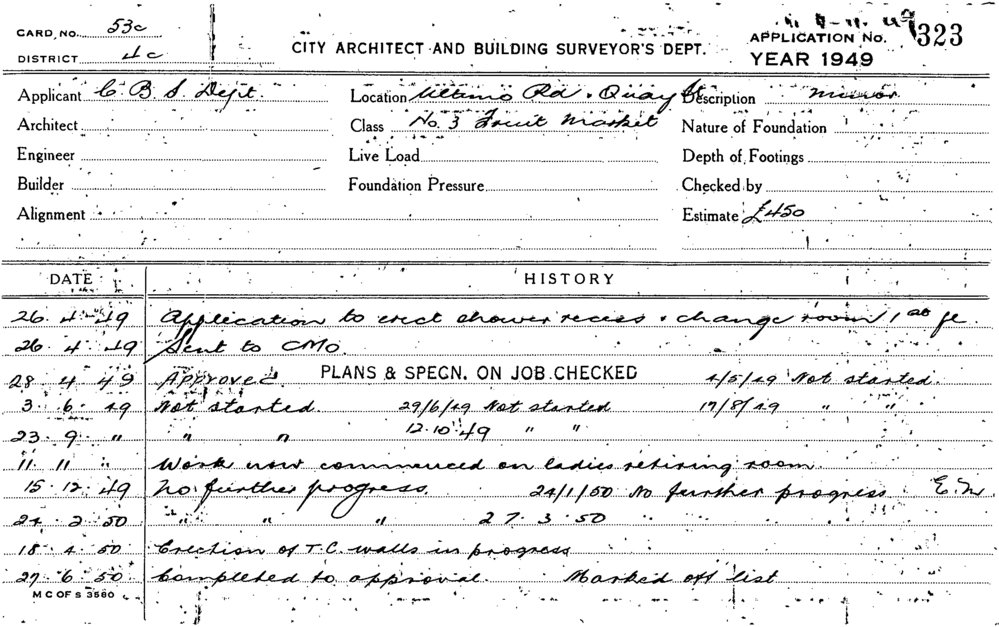 CARD. NO. 53c
DISTRICT 4c
CITY ARCHITECT AND BUILDING SURVEYOR'S DEPT.
APPLICATION NO. 323
YEAR 1949
Applicant C. B. S. Dept. Location Ultimo Rd. & Quay St Description minor
Architect Class No. 3 Fruit Market Nature of Foundation
Engineer Live Load Depth of Footings
Builder Foundation Pressure Checked by
Alignment Estimate £450
DATE HISTORY
26 4 49 Application to erect shower recess & change room 1st fl.
26 4 49 Sent to CMO.
28 4 49 Approved. PLANS & SPECN. ON JOB CHECKED 4/5/49 Not started.
3 6 49 Not started. 29/6/49 Not started 17/8/49 " "
23 9 " " " 12.10.49 " "
11 11 " Work now commenced on ladies retiring room.
15 12 49 No further progress. 24/1/50 No further progress
24 2 50 " " " 27.3.50 " " "
18 4 50 Erection of T.C. walls in progress
27 6 50 Completed to approval. Marked off list
M C OF S 3580